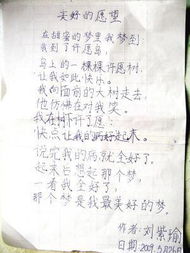 美好的愿望
在甜蜜的梦里我梦到
我到了许愿岛,
岛上的一棵棵许愿树,
让我如此快乐。
我向面前的大树走去,
他仿佛在对我笑。
我在树下许了愿:
快点让我的病好起来。
说完我的病就全好了,
起来回想起那个梦,
一看我全好了,
那个梦是我最美好的梦.
作者:刘紫瑜
日期2009.5月26日